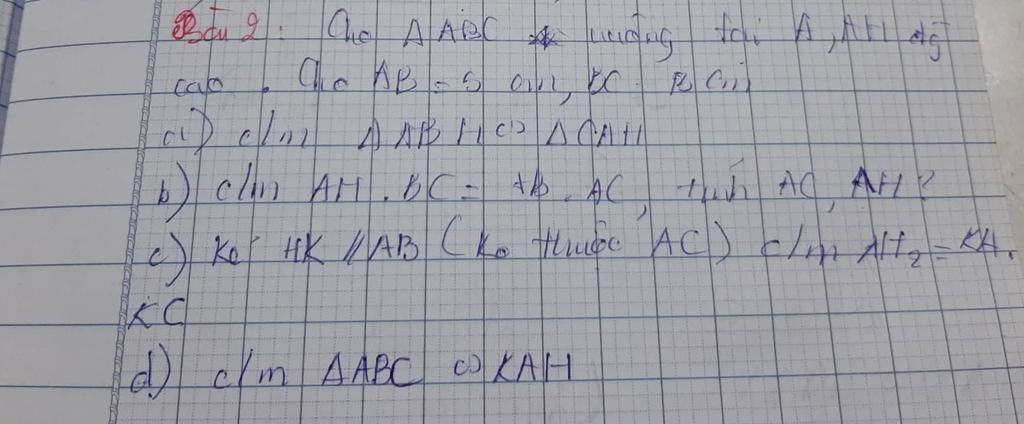 Bài 2: Cho Δ ABC vuông tại A, AH đg
cao. Cho AB = 5 cm, BC 13 Cm
a) c/m Δ ABH ∽ Δ CAH
b) c/m AH . BC = AB . AC, tính AC, AH?
c) Kẻ HK // AB (Ko thuộc AC) c/m AH₂ = KA.
KC
d) c/m ΔABC ∽ KAH